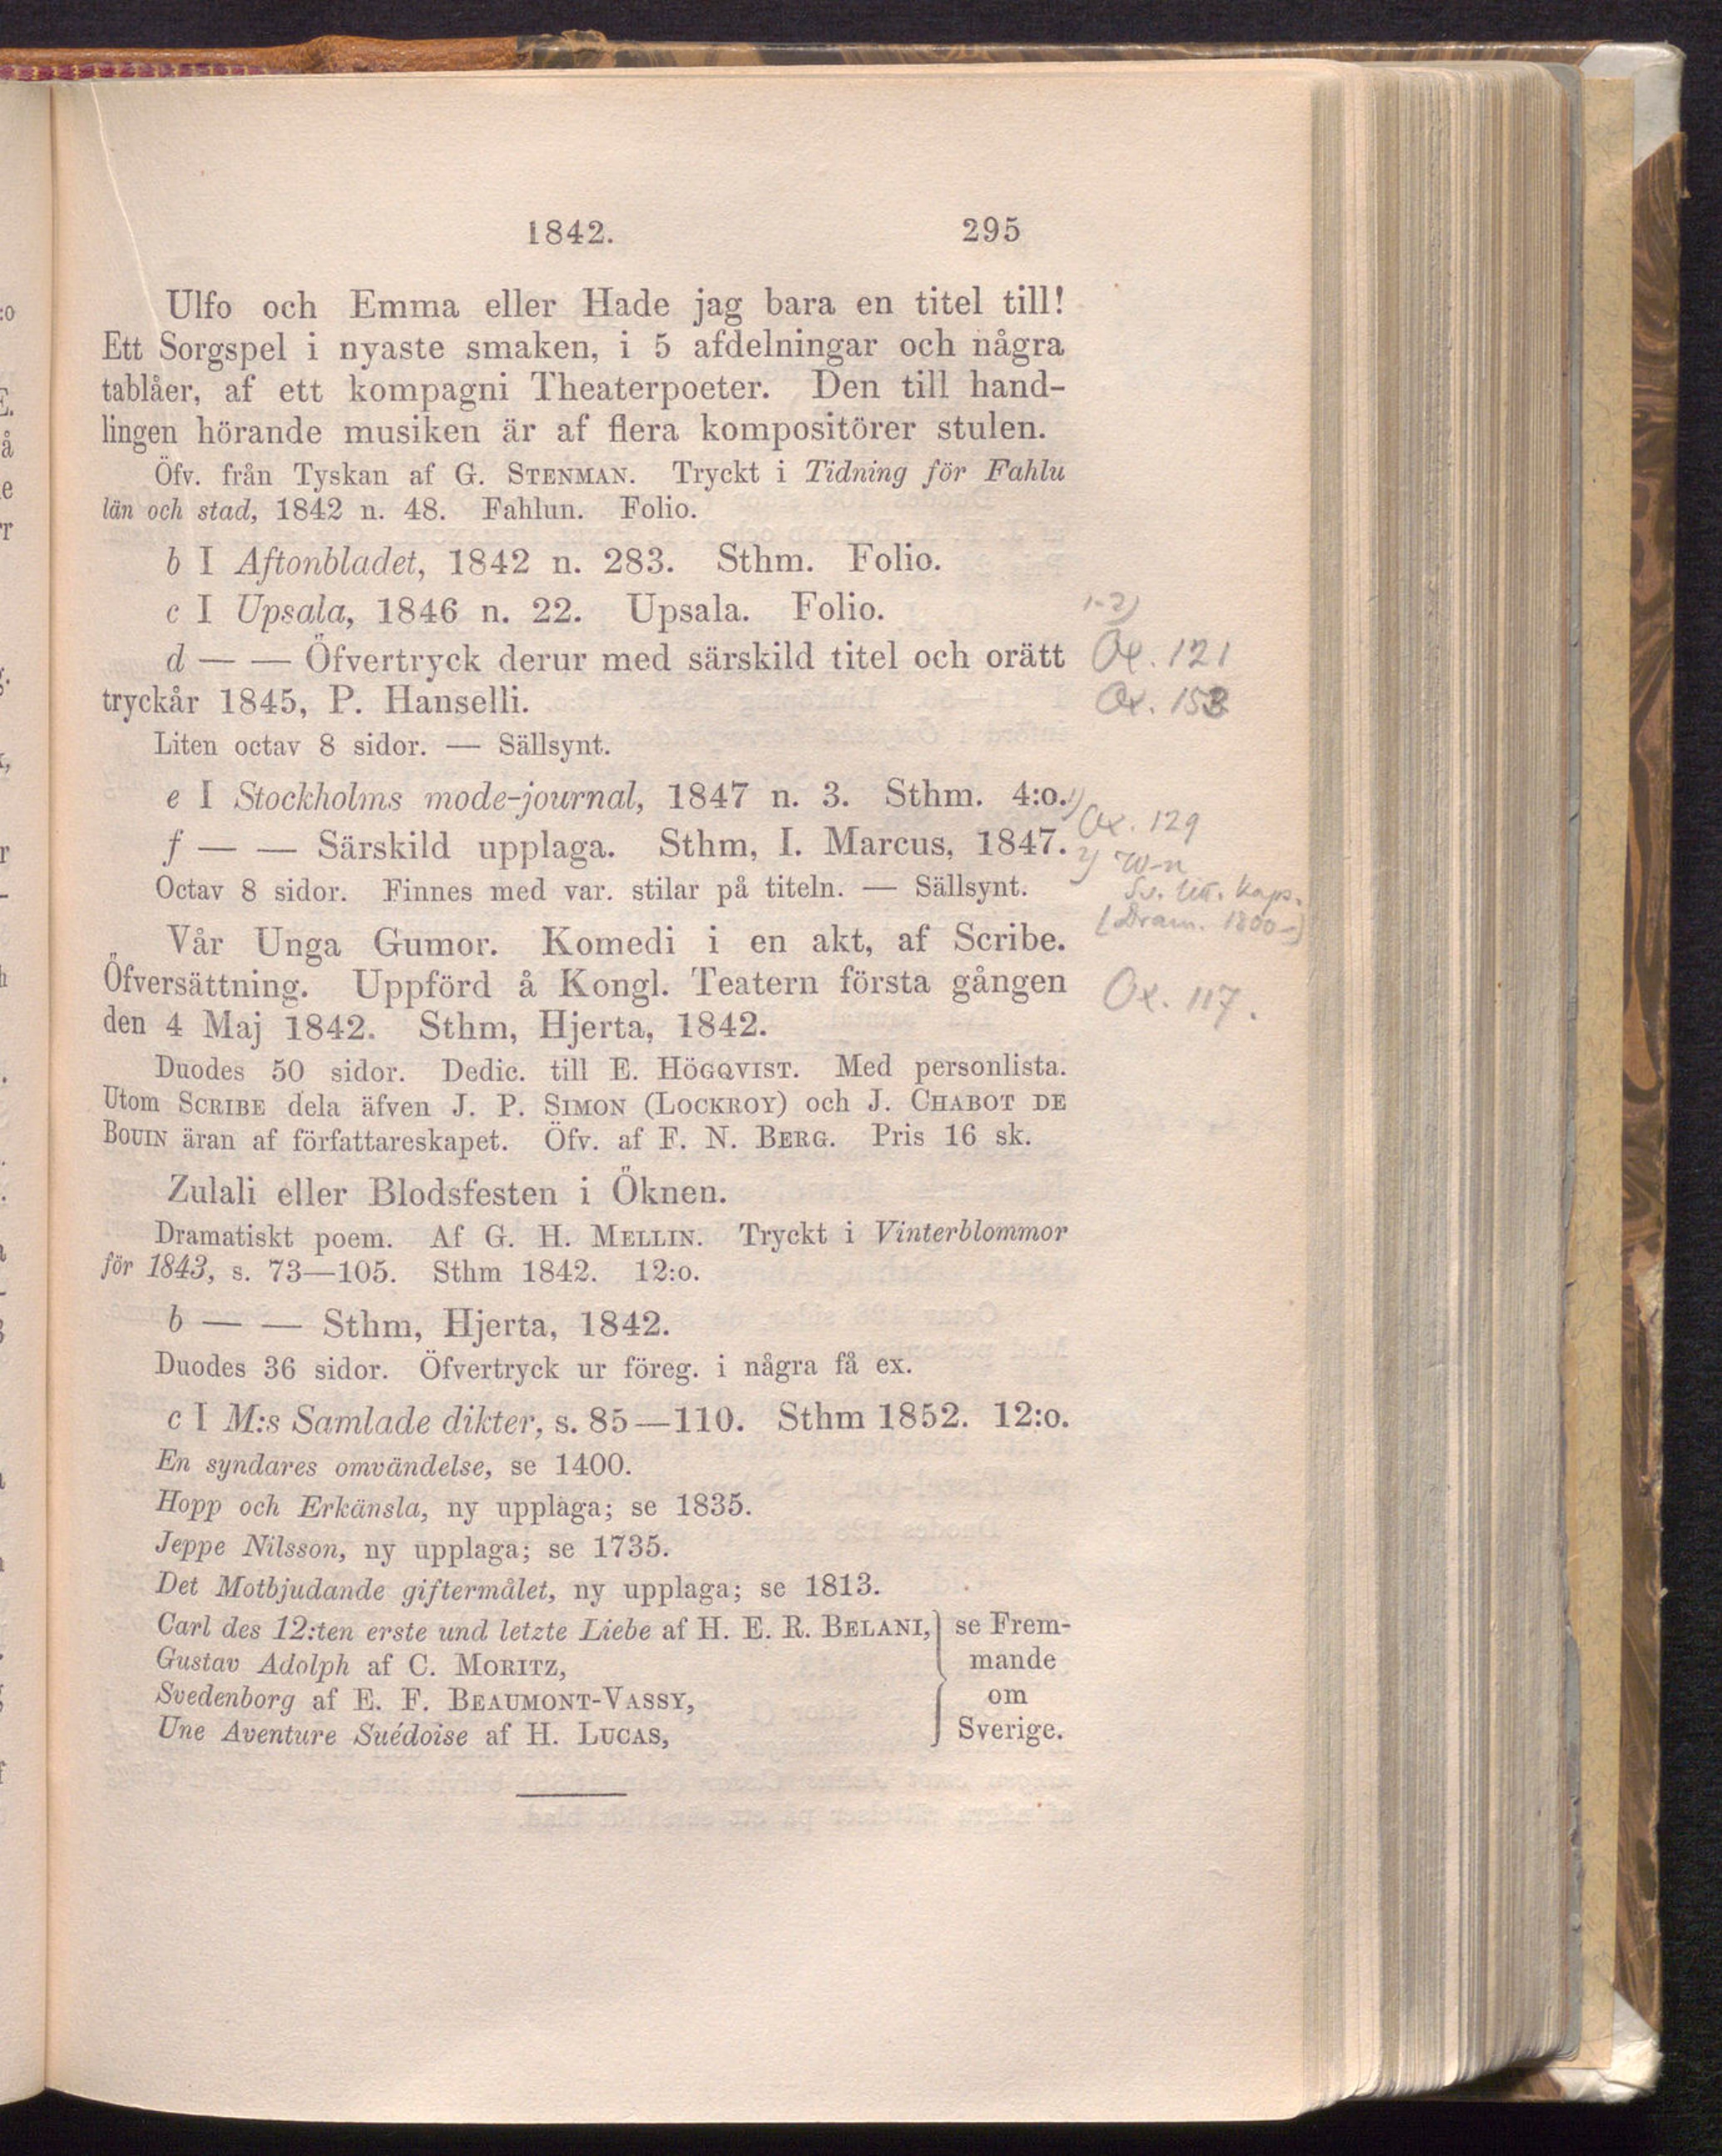 1842. 295
Ulfo och Emma eller Hade jag bara en titel till!
Ett Sorgspel i nyaste smaken, i 5 afdelningar och några
tablåer, af ett kompagni Theaterpoeter. Den till hand-
lingen hörande musiken är af flera kompositörer stulen.
Öfv. från Tyskan af G. STENMAN. Tryckt i Tidning för Fahlu
län och stad, 1842 n. 48. Fahlun. Folio.
b I Aftonbladet, 1842 n. 283. Sthm. Folio.
c I Upsala, 1846 n. 22. Upsala. Folio.
1-2)
d — — Öfvertryck derur med särskild titel och orätt
Ox. 121
tryckår 1845, P. Hanselli.
Ox. 153
Liten octav 8 sidor. — Sällsynt.
e I Stockholms mode-journal, 1847 n. 3. Sthm. 4:o.
1) Ox. 129
f — — Särskild upplaga. Sthm, I. Marcus, 1847.
2) W-n
Octav 8 sidor. Finnes med var. stilar på titeln. — Sällsynt.
Sv. litt. Kaps.
(Dram. 1800-)
Vår Unga Gumor. Komedi i en akt, af Scribe.
Öfversättning. Uppförd å Kongl. Teatern första gången
Ox. 117.
den 4 Maj 1842. Sthm, Hjerta, 1842.
Duodes 50 sidor. Dedic. till E. HÖGQVIST. Med personlista.
Utom SCRIBE dela äfven J. P. SIMON (LOCKROY) och J. CHABOT DE
BOUIN äran af författareskapet. Öfv. af F. N. BERG. Pris 16 sk.
Zulali eller Blodsfesten i Öknen.
Dramatiskt poem. Af G. H. MELLIN. Tryckt i Vinterblommor
för 1843, s. 73—105. Sthm 1842. 12:o.
b — — Sthm, Hjerta, 1842.
Duodes 36 sidor. Öfvertryck ur föreg. i några få ex.
c I M:s Samlade dikter, s. 85—110. Sthm 1852. 12:o.
En syndares omvändelse, se 1400.
Hopp och Erkänsla, ny upplaga; se 1835.
Jeppe Nilsson, ny upplaga; se 1735.
Det Motbjudande giftermålet, ny upplaga; se 1813.
Carl des 12:ten erste und letzte Liebe af H. E. R. BELANI, se Frem-
Gustav Adolph af C. MORITZ, mande
Svedenborg af E. F. BEAUMONT-VASSY, om
Une Aventure Suédoise af H. LUCAS, Sverige.